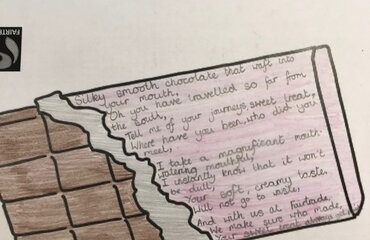 FAIRTR
Silky smooth chocolate that waft into
your mouth,
Oh you have travelled so far from
the south,
Tell me of your journeys, sweet treat,
Where have you been, who did you
meet,
I take a magnificant mouth-
watering mouthful,
I instantly know that it won't
be dull,
Your soft, creamy taste,
Will not go to waste,
And with us at Fairtrade,
We make sure who made,
Your sweet treat always get